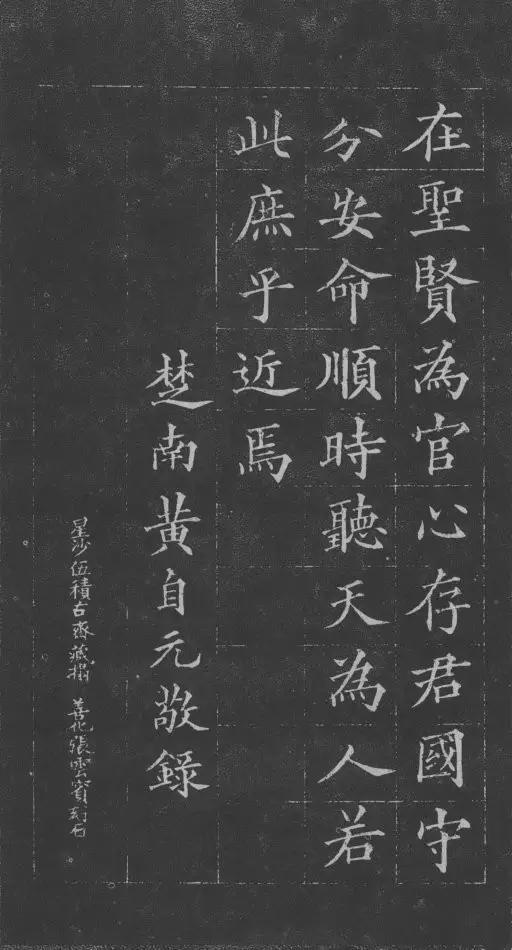 在聖賢為官心存君國守
分安命順時聽天為人若
此庶乎近焉
楚南黃自元敬錄
星沙伍積古齋藏搨 善化張雲賓刻石